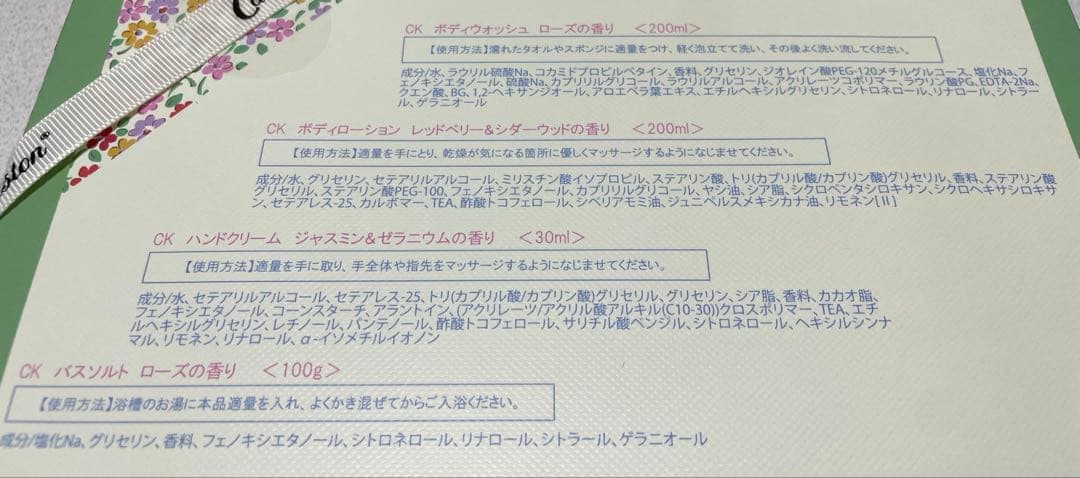 Ca
ston®
CK ボディウォッシュ ローズの香り <200ml>
【使用方法】濡れたタオルやスポンジに適量をつけ、軽く泡立てて洗い、その後よく洗い流してください。
成分/水、ラウリル硫酸Na、コカミドプロピルベタイン、香料、グリセリン、ジオレイン酸PEG-120メチルグルコース、塩化Na、フ
ェノキシエタノール、硫酸Na、カプリリルグリコール、ラウリルアルコール、アクリレーツコポリマー、ラウリン酸PG、EDTA-2Na、
クエン酸、BG、1,2-ヘキサンジオール、アロエベラ葉エキス、エチルヘキシルグリセリン、シトロネロール、リナロール、シトラー
ル、ゲラニオール
CK ボディローション レッドベリー&シダーウッドの香り <200ml>
【使用方法】適量を手にとり、乾燥が気になる箇所に優しくマッサージするようになじませてください。
成分/水、グリセリン、セテアリルアルコール、ミリスチン酸イソプロピル、ステアリン酸、トリ(カプリル酸/カプリン酸)グリセリル、香料、ステアリン酸
グリセリル、ステアリン酸PEG-100、フェノキシエタノール、カプリリルグリコール、ヤシ油、シア脂、シクロペンタシロキサン、シクロヘキサシロキサ
ン、セテアレス-25、カルボマー、TEA、酢酸トコフェロール、シベリアモミ油、ジュニペルスメキシカナ油、リモネン[Ⅱ]
CK ハンドクリーム ジャスミン&ゼラニウムの香り <30ml>
【使用方法】適量を手に取り、手全体や指先をマッサージするようになじませてください。
成分/水、セテアリルアルコール、セテアレス-25、トリ(カプリル酸/カプリン酸)グリセリル、グリセリン、シア脂、香料、カカオ脂、
フェノキシエタノール、コーンスターチ、アラントイン、(アクリレーツ/アクリル酸アルキル(C10-30))クロスポリマー、TEA、エチ
ルヘキシルグリセリン、レチノール、パンテノール、酢酸トコフェロール、サリチル酸ベンジル、シトロネロール、ヘキシルシンナ
マル、リモネン、リナロール、α-イソメチルイオノン
CK バスソルト ローズの香り <100g>
【使用方法】浴槽のお湯に本品適量を入れ、よくかき混ぜてからご入浴ください。
成分/塩化Na、グリセリン、香料、フェノキシエタノール、シトロネロール、リナロール、シトラール、ゲラニオール